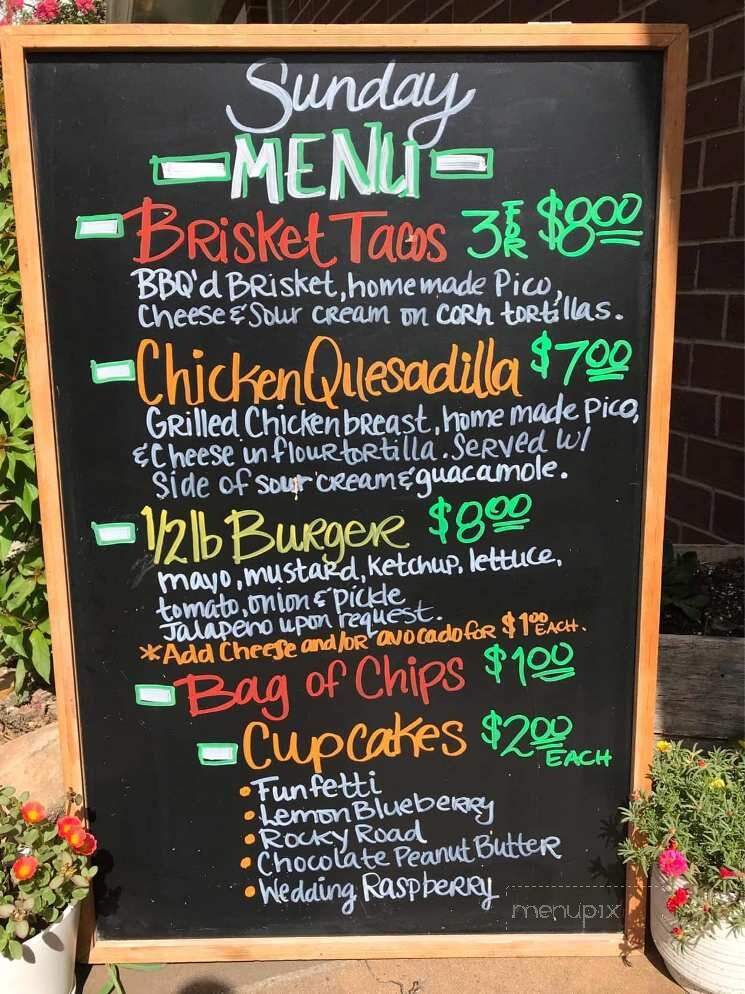 Sunday
MENU
Brisket Tacos 3 FOR $8.00
BBQ'd Brisket, homemade Pico,
Cheese & Sour cream on corn tortillas.
Chicken Quesadilla $7.00
Grilled Chicken breast, home made Pico,
& Cheese in flour tortilla. Served w/
Side of sour cream & guacamole.
1/2 lb Burger $8.00
mayo, mustard, ketchup, lettuce,
tomato, onion & pickle
Jalapeno upon request.
*Add Cheese and/or avocado for $1.00 EACH.
Bag of Chips $1.00
Cupcakes $2.00 EACH
• Funfetti
• Lemon Blueberry
• Rocky Road
• Chocolate Peanut Butter
• Wedding Raspberry
menupix